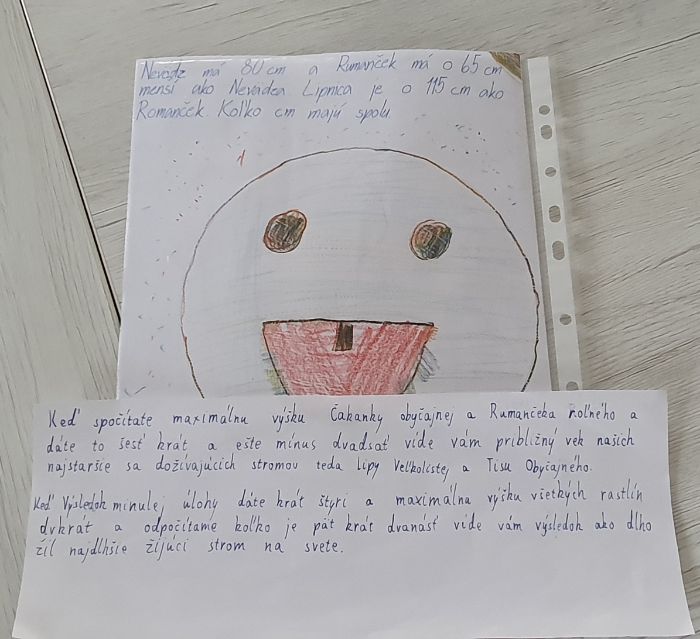 Nevädz má 80 cm a Rumanček má o 65 cm
menší ako Nevädza. Lipnica je o 115 cm ako
Romanček. Koľko cm majú spolu
Keď spočítate maximálnu výšku Čakanky obyčajnej a Rumančeka roľného a
dáte to šesť krát a ešte mínus dvadsať vide vám približný vek našich
najstaršie sa dožívajúcich stromov teda Lipy Veľkolistej a Tisu Obyčajného.
Keď Výsledok minulej úlohy dáte krát štyri a maximálnu výšku všetkých rastlín
dvkrát a odpočítame koľko je päť krát dvanásť vide vám výsledok ako dlho
žil najdlhšie žijúci strom na svete.